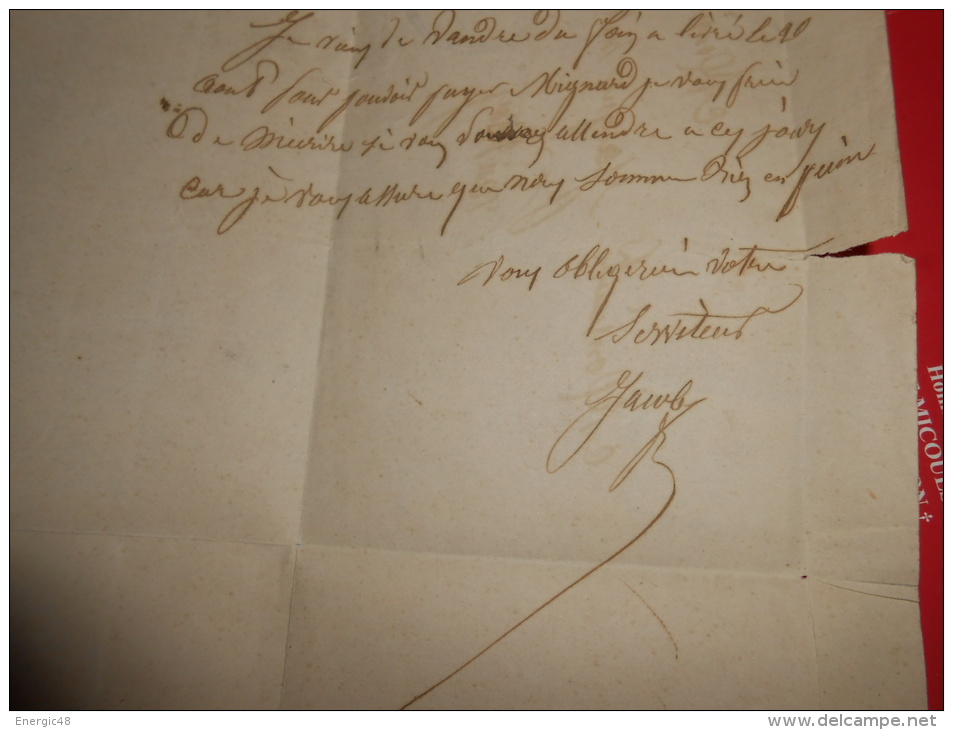 Je vien de vandre du foin a livré le 20
aout pour pouvoir payer Mignard je vous prie
de mécrire si vous voulez attendre a ces jours
car je vous assure que nous somme bien en
vous obligerai votre
Serviteur
Jacob
MICOUL
Energic48
www.delcampe.net